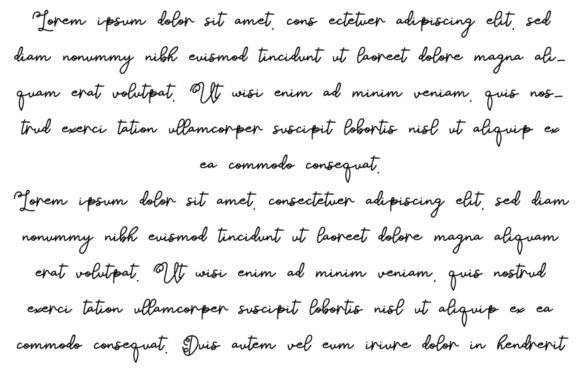 Lorem ipsum dolor sit amet, cons ectetuer adipiscing elit, sed
diam nonummy nibh euismod tincidunt ut laoreet dolore magna ali-
quam erat volutpat. Ut wisi enim ad minim veniam, quis nos-
trud exerci tation ullamcorper suscipit lobortis nisl ut aliquip ex
ea commodo consequat.
Lorem ipsum dolor sit amet, consectetuer adipiscing elit, sed diam
nonummy nibh euismod tincidunt ut laoreet dolore magna aliquam
erat volutpat. Ut wisi enim ad minim veniam, quis nostrud
exerci tation ullamcorper suscipit lobortis nisl ut aliquip ex ea
commodo consequat. Duis autem vel eum iriure dolor in hendrerit